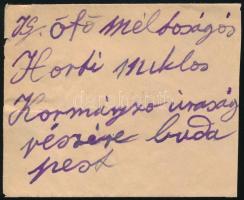 Ig. ófő méltoságós
Horti miklos
Kormányzo úraság
részére buda
pest